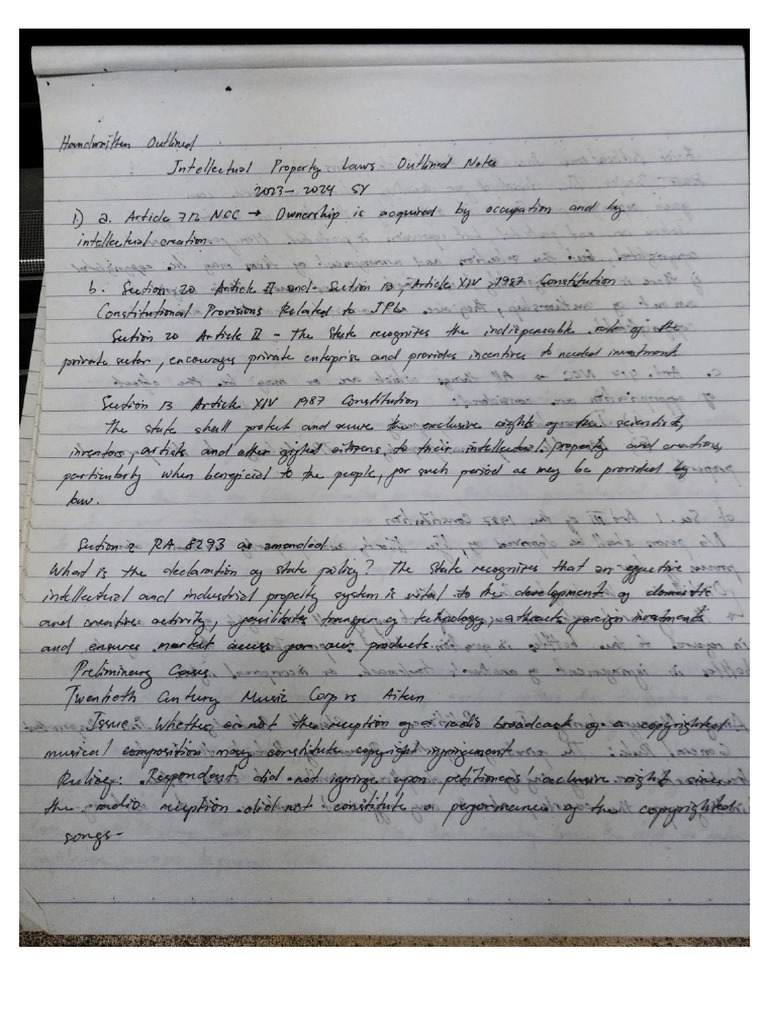 Handwritten Outlined
Intellectual Property Laws Outlined Notes
2023-2024 SY
1.) a. Article 712 NCC → Ownership is acquired by occupation and by
intellectual creation.
b. Section 20 Article II and Section 13, Article XIV, 1987 Constitution
Constitutional Provisions Related to IPL:
Section 20 Article II - The State recognizes the indispensable role of the
private sector, encourages private enterprise and provides incentives to needed investment
Section 13 Article XIV 1987 Constitution
The state shall protect and secure the exclusive rights of the scientist,
inventors, artists and other gifted citizens, to their intellectual property and creations,
particularly when beneficial to the people, for such period as may be provided by
law.
Section 2 RA 8293 as amended
What is the declaration of state policy? The State recognizes that an effective
intellectual and industrial property system is vital to the development of domestic
and creative activity, facilitates transfer of technology, attracts foreign investments
and ensures market access for our products.
Preliminary Cases
Twentieth Century Music Corp vs Aiken
Issue: Whether or not the reception of a radio broadcast of a copyrighted
musical composition may constitute copyright infringement
Ruling: Respondent did not infringe upon petitioners' exclusive right since
the radio reception did not constitute a performance of the copyrighted
songs.